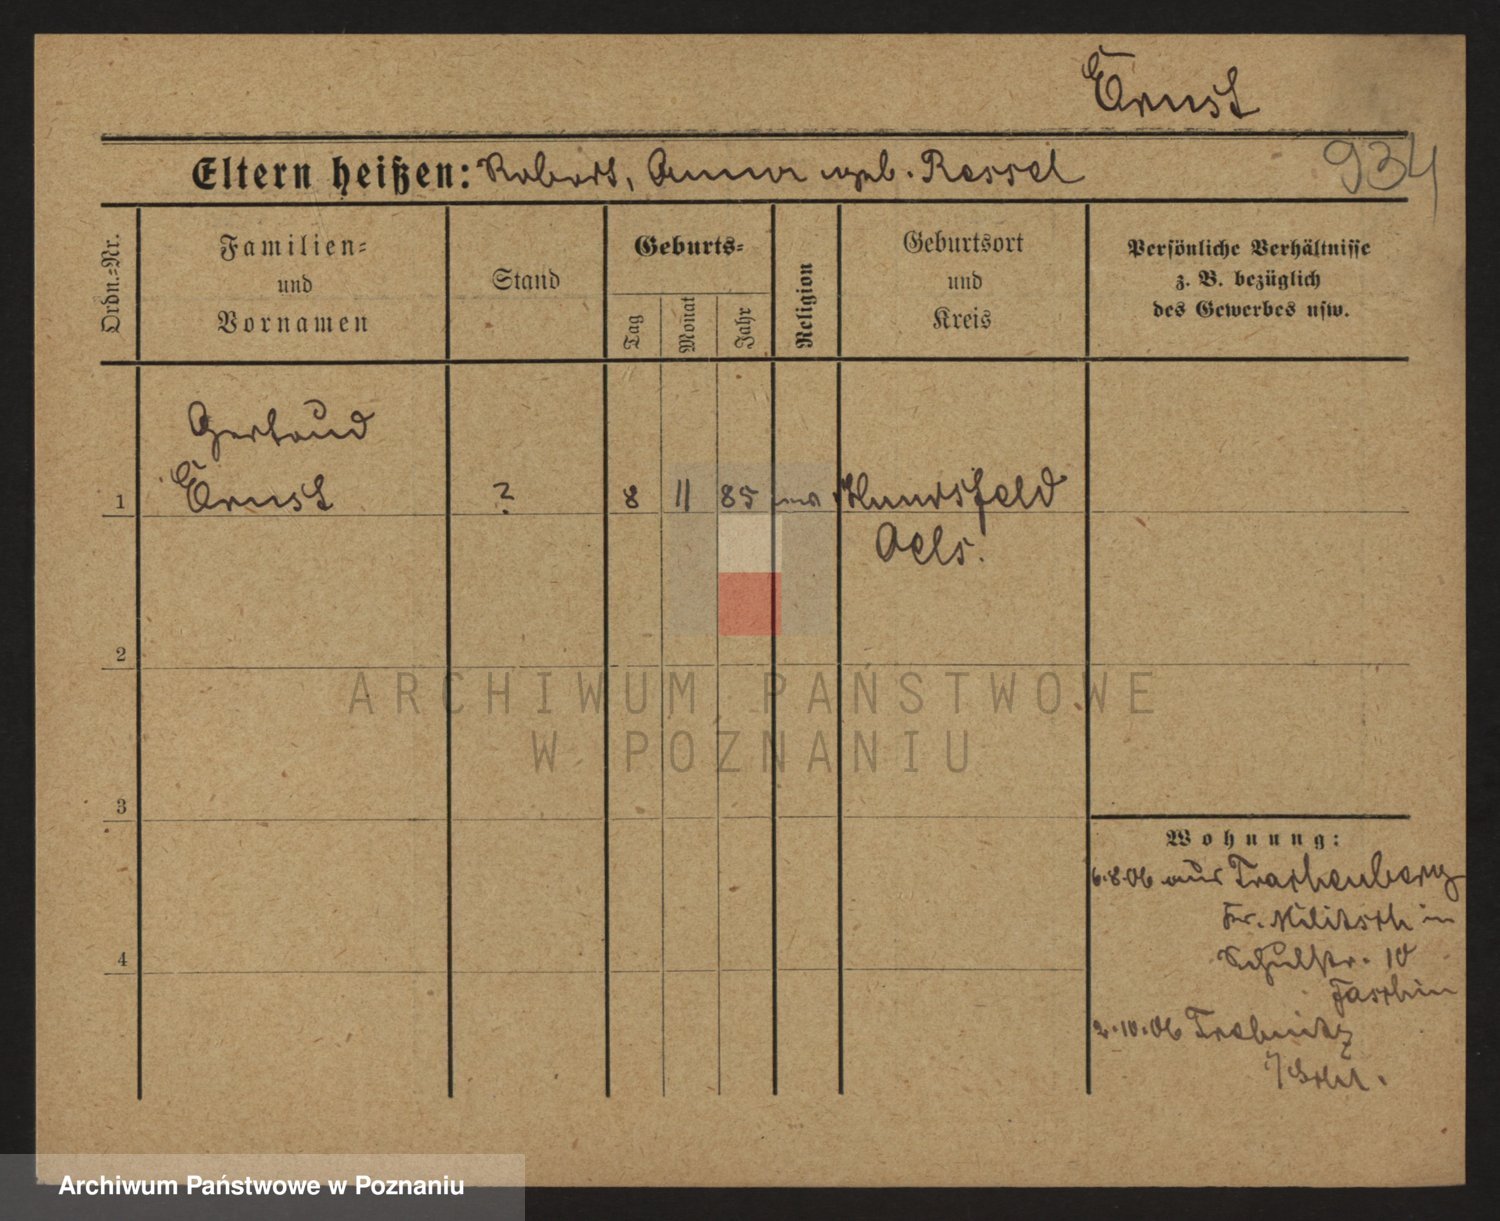 Ernst
934
Eltern heißen: Robert, Anna geb. Ressel
Ordn.=Nr.
Familien=
und
Vornamen
Stand
Geburts=
Tag
Monat
Jahr
Religion
Geburtsort
und
Kreis
Persönliche Verhältnisse
z. B. bezüglich
des Gewerbes usw.
Gertrud
1 Ernst ? 8 11 85 Hundsfeld
Oels.
2
3
4
Wohnung:
6.8.06 aus Trachenberg
Kr. Militsch in
Schulstr. 10
2.10.06 Trebnitz
ARCHIWUM PAŃSTWOWE
W POZNANIU
Archiwum Państwowe w Poznaniu